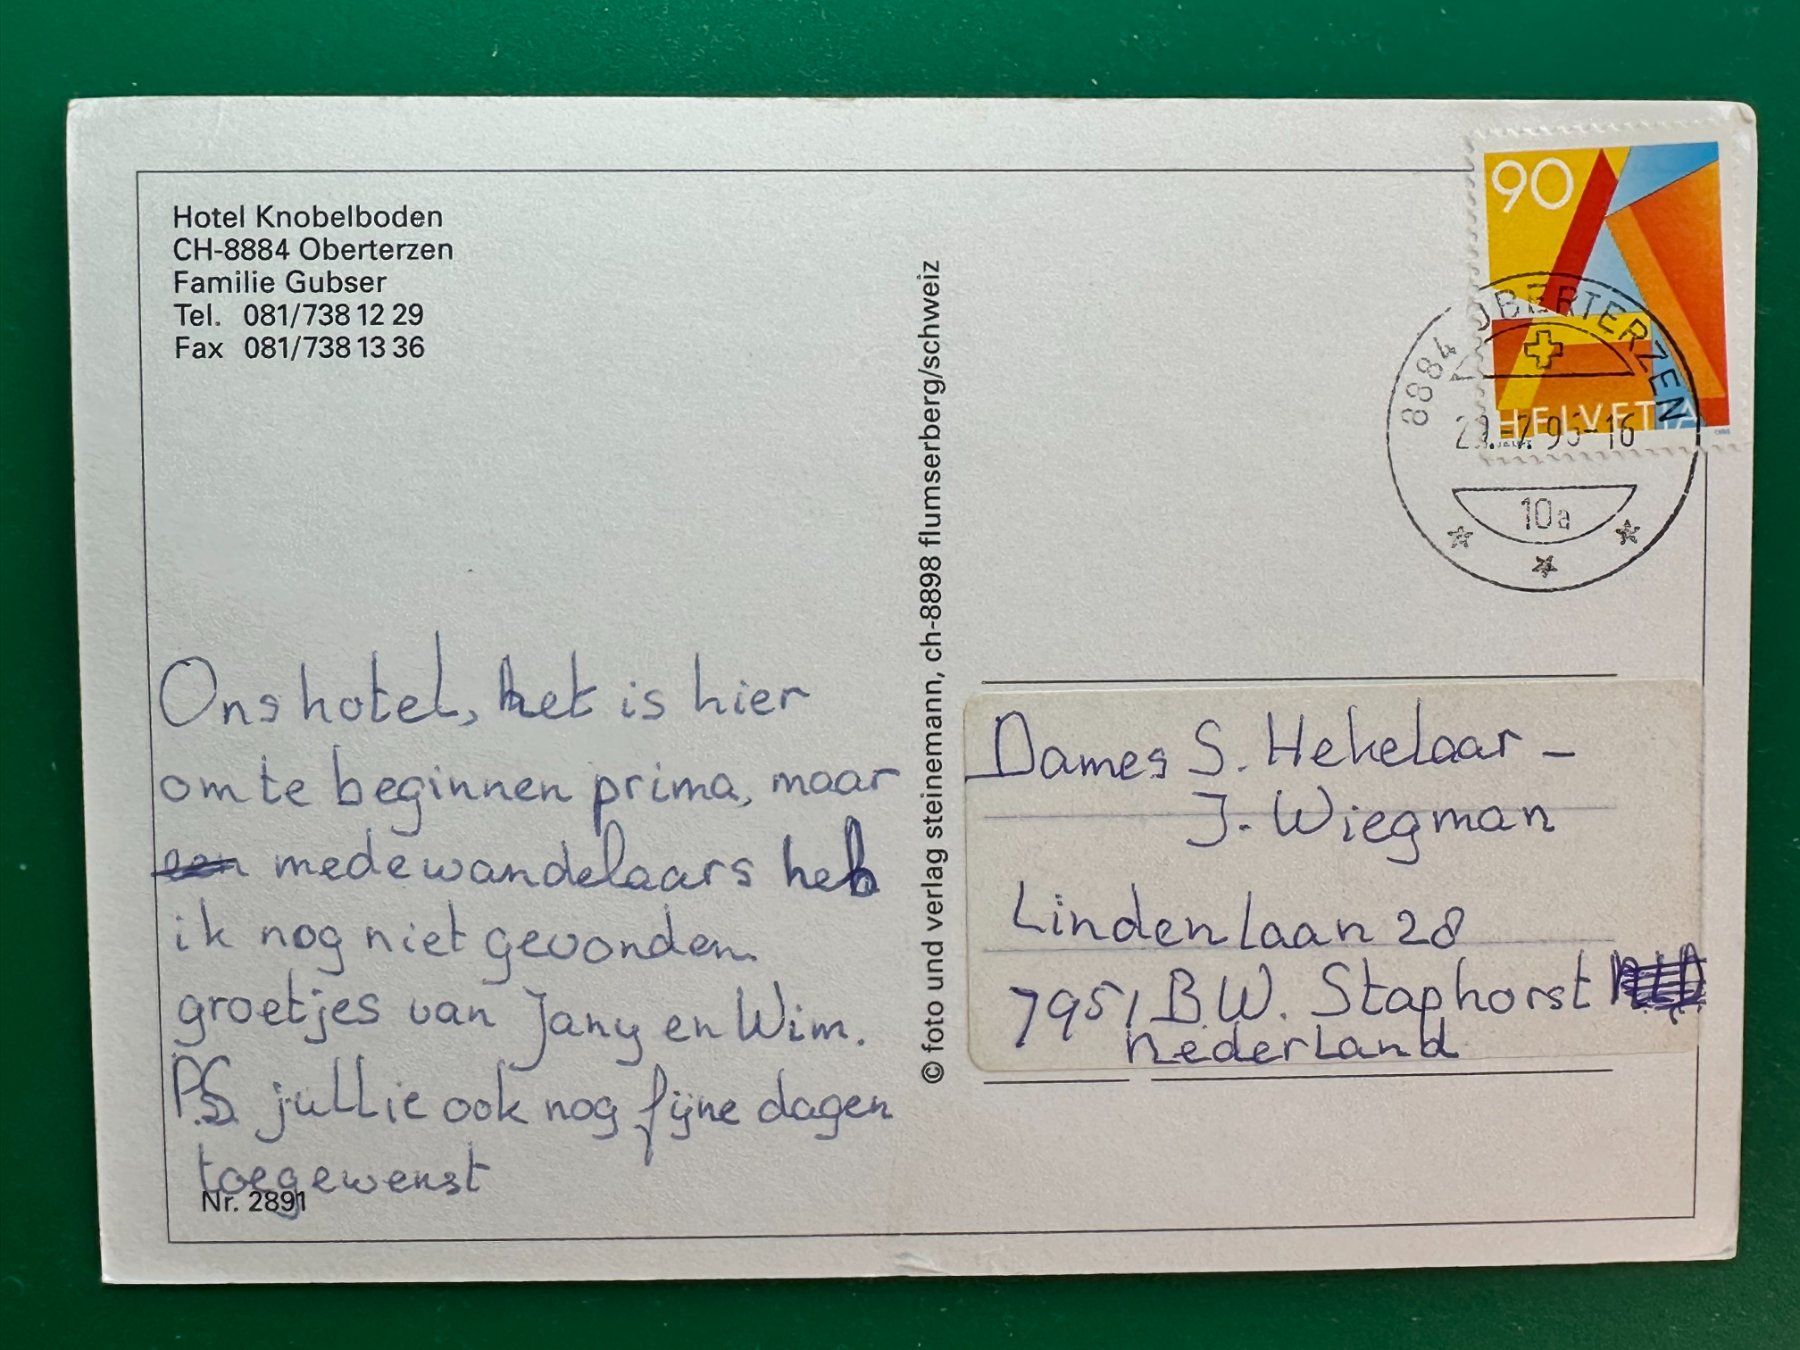 Hotel Knobelboden
CH-8884 Oberterzen
Familie Gubser
Tel. 081/738 12 29
Fax 081/738 13 36
Ons hotel, het is hier
om te beginnen prima, maar
een medewandelaars heb
ik nog niet gevonden.
groetjes van Jany en Wim.
P.S. jullie ook nog fijne dagen
toegewenst
Nr. 2891
© foto und verlag steinemann, ch-8898 flumserberg/schweiz
90
HELVETIA
8884 OBERTERZEN
10a
Dames S. Hekelaar –
J. Wiegman
Lindenlaan 28
7951 B.W. Staphorst
Nederland